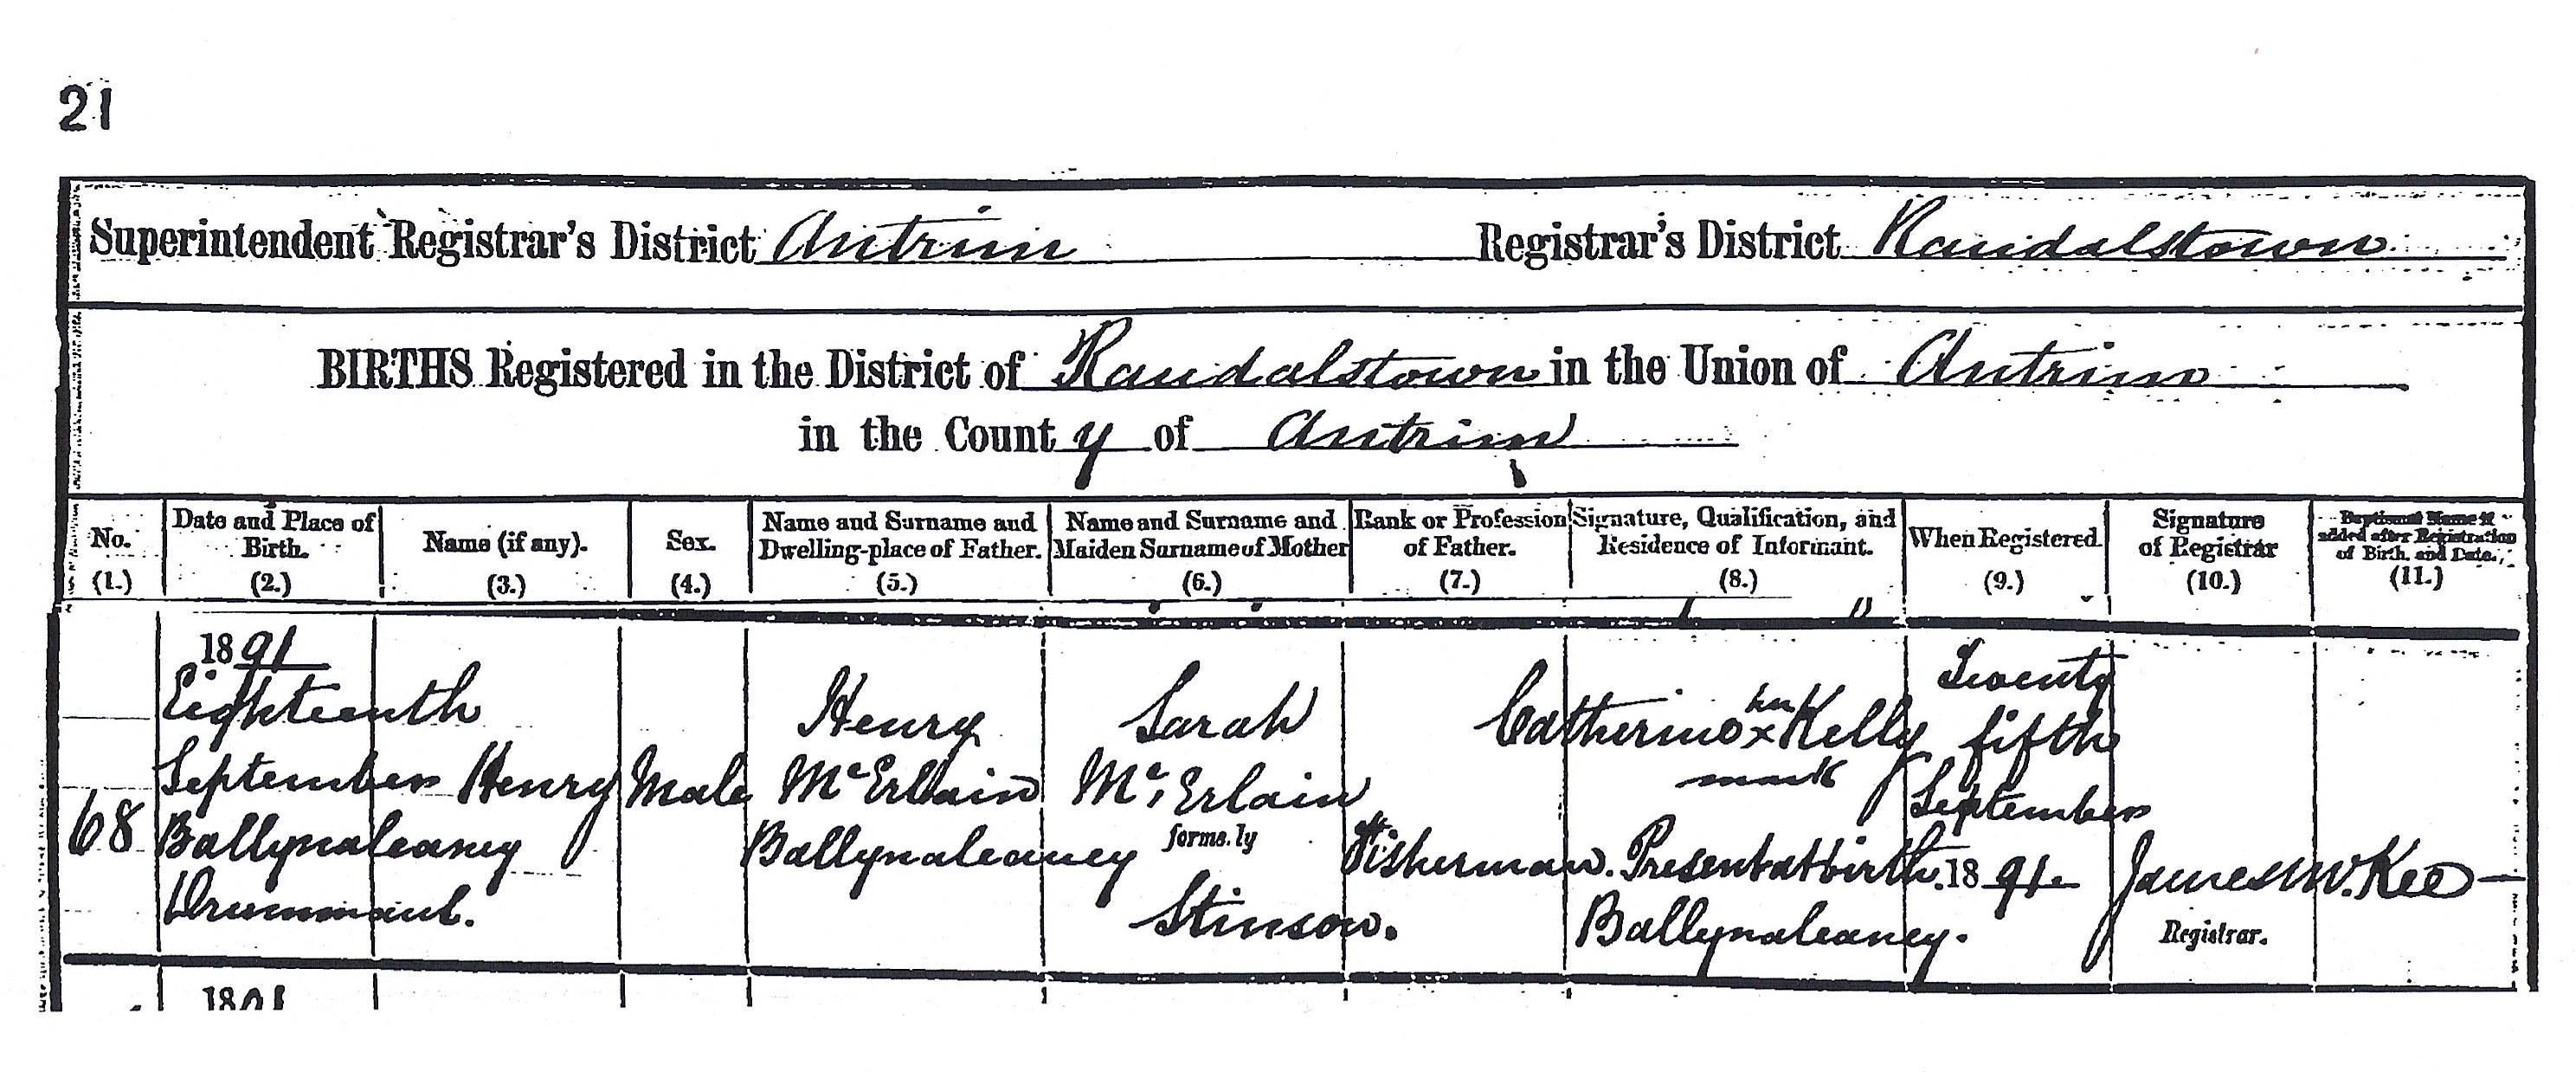 21
Superintendent Registrar's District Antrim Registrar's District Randalstown
BIRTHS Registered in the District of Randalstown in the Union of Antrim
in the County of Antrim
No.
(1.)
Date and Place of
Birth.
(2.)
Name (if any).
(3.)
Sex.
(4.)
Name and Surname and
Dwelling-place of Father.
(5.)
Name and Surname and
Maiden Surname of Mother
(6.)
Rank or Profession
of Father.
(7.)
Signature, Qualification, and
Residence of Informant.
(8.)
When Registered.
(9.)
Signature
of Registrar
(10.)
Baptismal Name if
added after Registration
of Birth, and Date.
(11.)
68
1891
Eighteenth
September
Ballynaleaney
Drummaul.
Henry
Male
Henry
McErlain
Ballynaleaney
Sarah
McErlain
formerly
Stinson.
Fisherman.
Catherine x Kelly
her
mark
Present at birth.
Ballynaleaney.
Twenty
fifth
September
1891
James W. Kee
Registrar.
1891